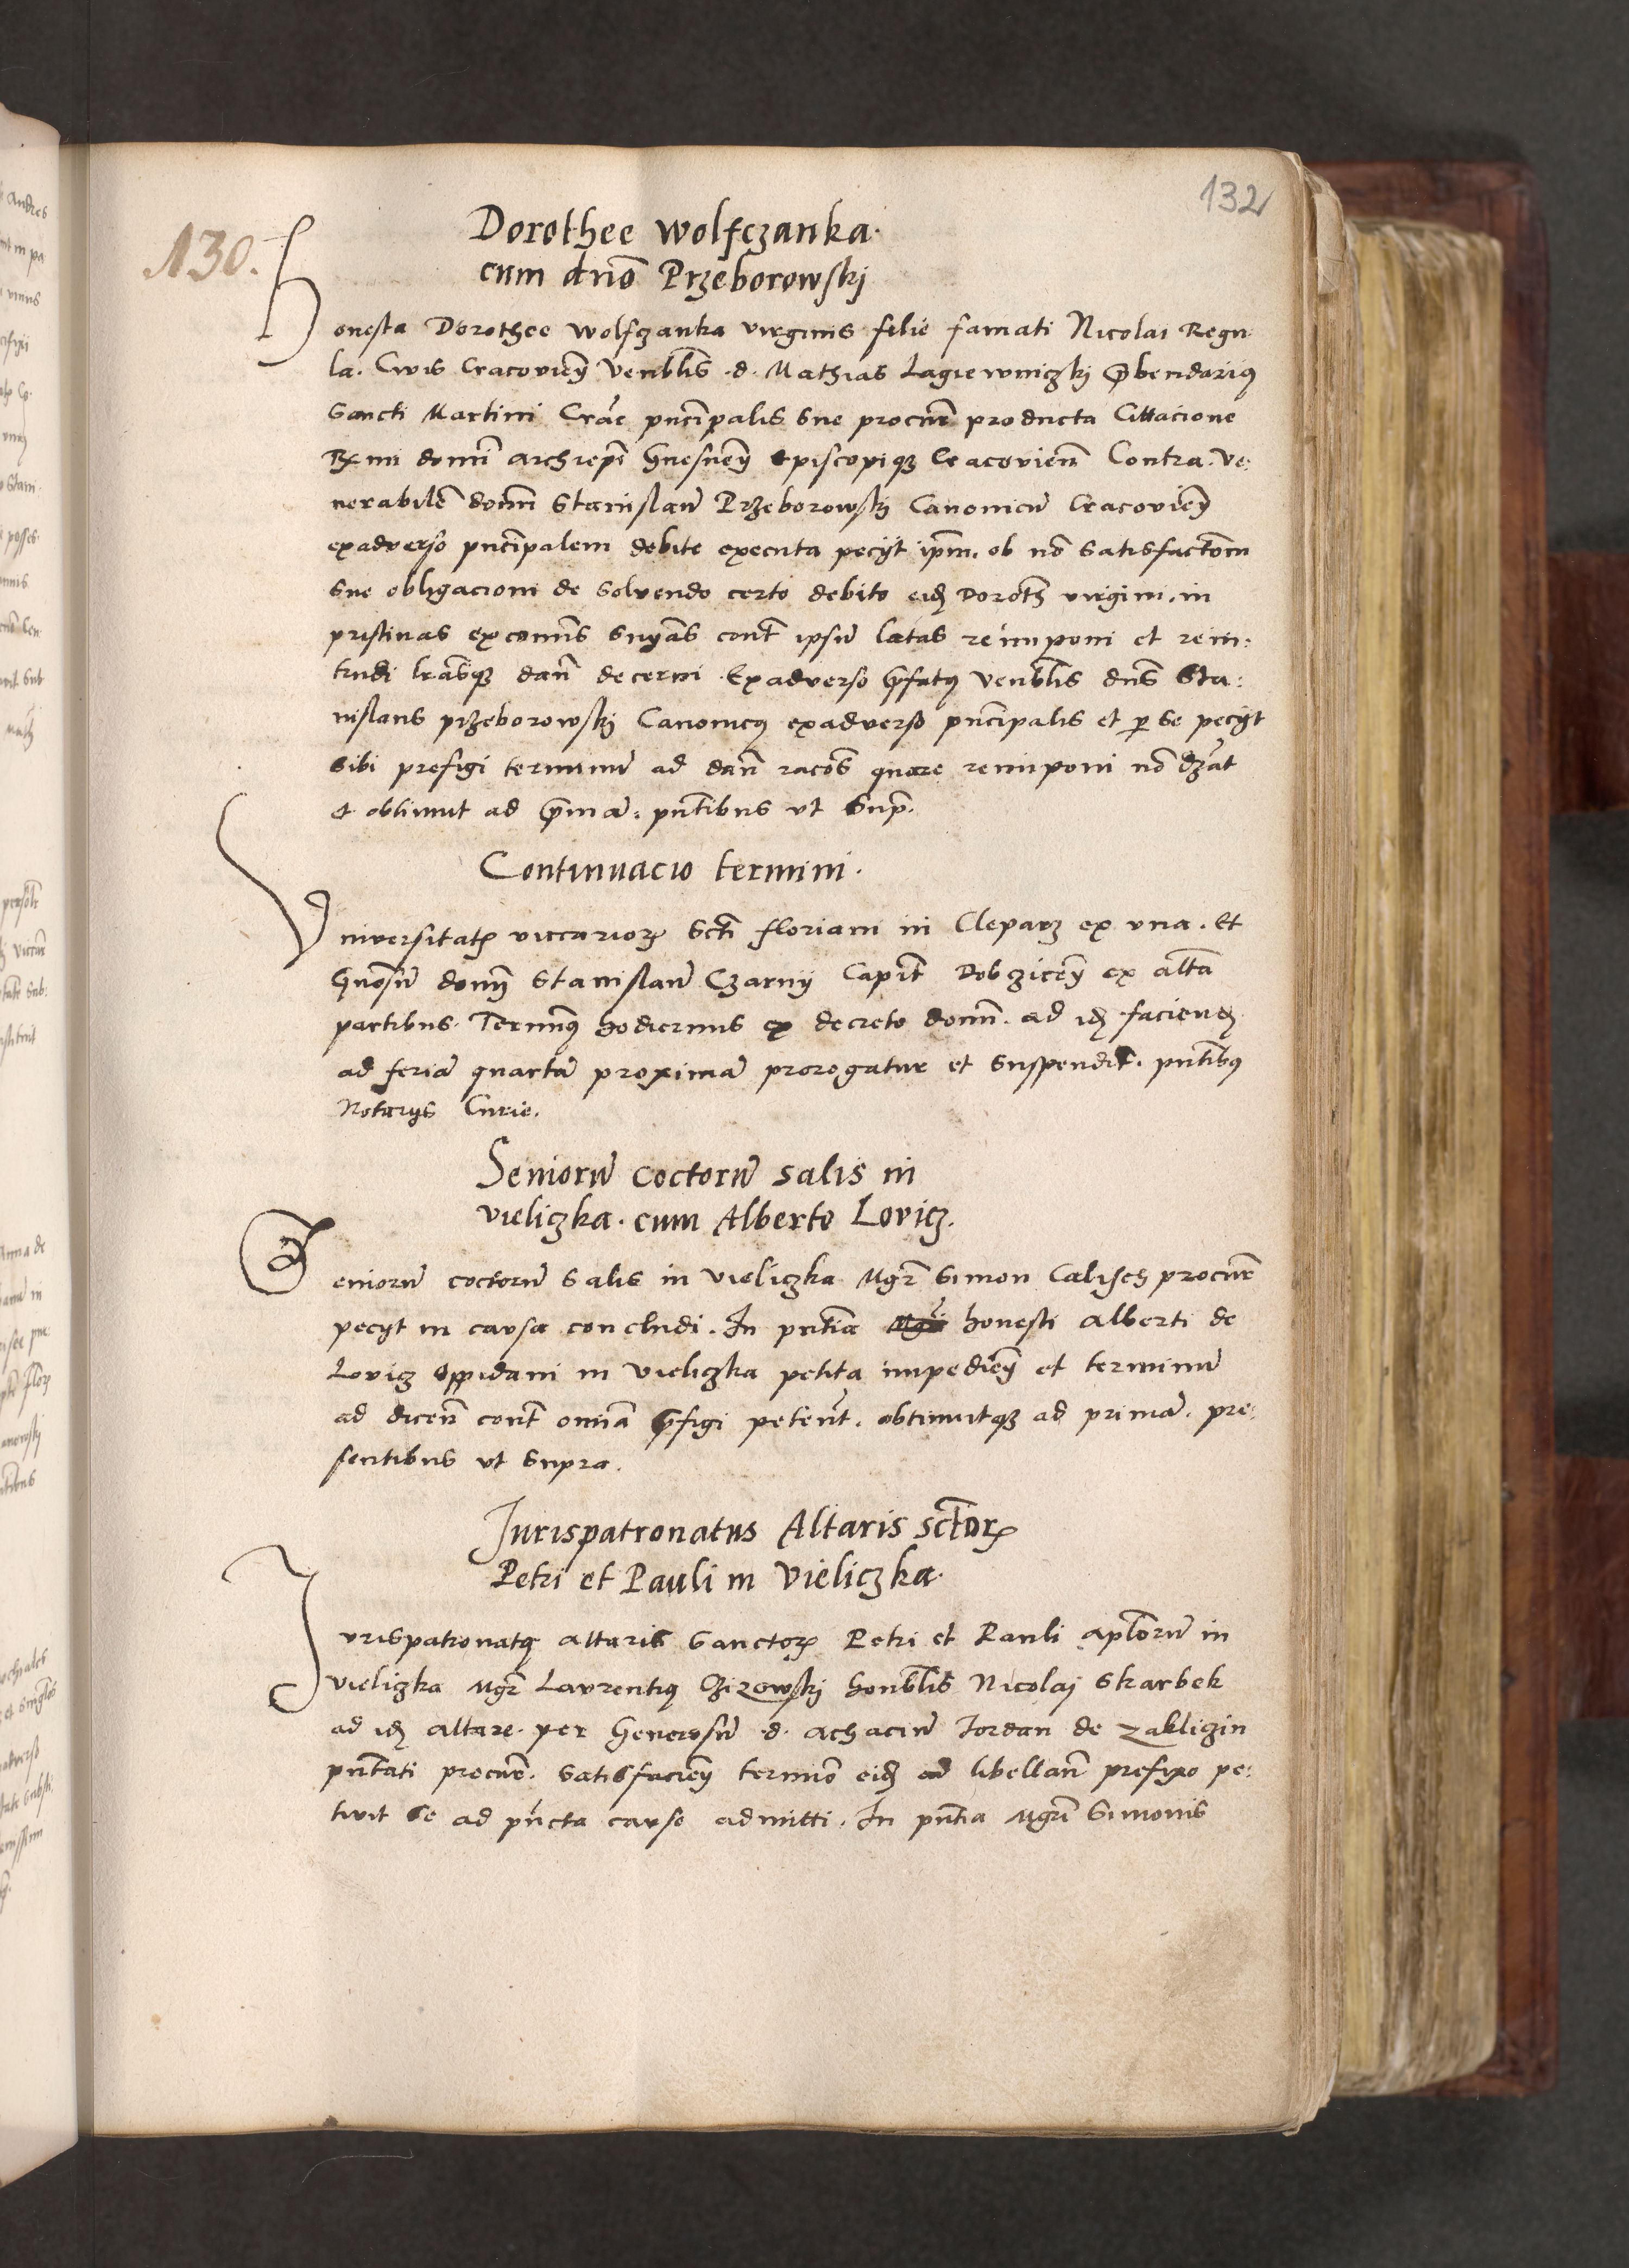 132
130.
Dorothee Wolfczanka
cum dno Przeborowskj
Honesta Dorothee Wolfczanka virginis filie famati Nicolai Regu
la. Civis Cracovien Venblis d. Mathias Lagiewniczkj pbendarius
Sancti Martini Crac pncipalis sue procur producta Cittacione
Rmi domi archiepi Gnesnen Episcopiq Cracovien Contra Ve:
nerabile domi Stanislau Przeborowskj Canonicu Cracovien
exadverso pncipalem debite executa pecyt ipm. ob no satisfactom
sue obligacioni de solvendo certo debito eid Doroth virgini. in
pristinas excomis snyas cont ipsu latas reimponi et rein:
trudi lrasq dan decerni Exadverso pfatus Venblis dns Sta:
nislaus przeborowskj Canonicus exadverso pncipalis et p se pecyt
sibi prefigi terminu ad dan racos quare reimponi no
et obtinuit ad pma. pntibus ut sup.
Continuacio termini.
Vniversitate viccarior Scti floriani in Cleparz ex una. Et
Gnosu domi Stanislau Czarnij Capit Dobzicen ex alta
partibus. Terminus hodiernus ex decreto domi. ad id faciend
ad feria quarta proxima prorogatur et suspendit. pntibus
Notarijs Curie.
Senioru coctoru salis in
vieliczka. cum Alberto Lovicz.
Senioru coctoru salis in vieliczka Mgr Simon Calisch procur
pecyt in causa concludi. In pntia honesti Alberti de
Lovicz oppidani in vieliczka petita impedien et terminu
ad dicen cont omia pfigi peten. obtinuitq ad prima. pre:
sentibus ut supra.
Jurispatronatus Altaris sctor
Petri et Pauli in Vieliczka.
Jurispatronatus altaris Sanctor Petri et Pauli aplorum in
vieliczka Mgr Laurentius honblis Nicolaj Skarbek
ad id altare per Generosu d. achaciu Jordan de Zakliczin
pntati procur. satisfacien termino eid ad libellan prefixo pe:
tivit se ad puncta cause admitti. In pntia Mgri Simonis